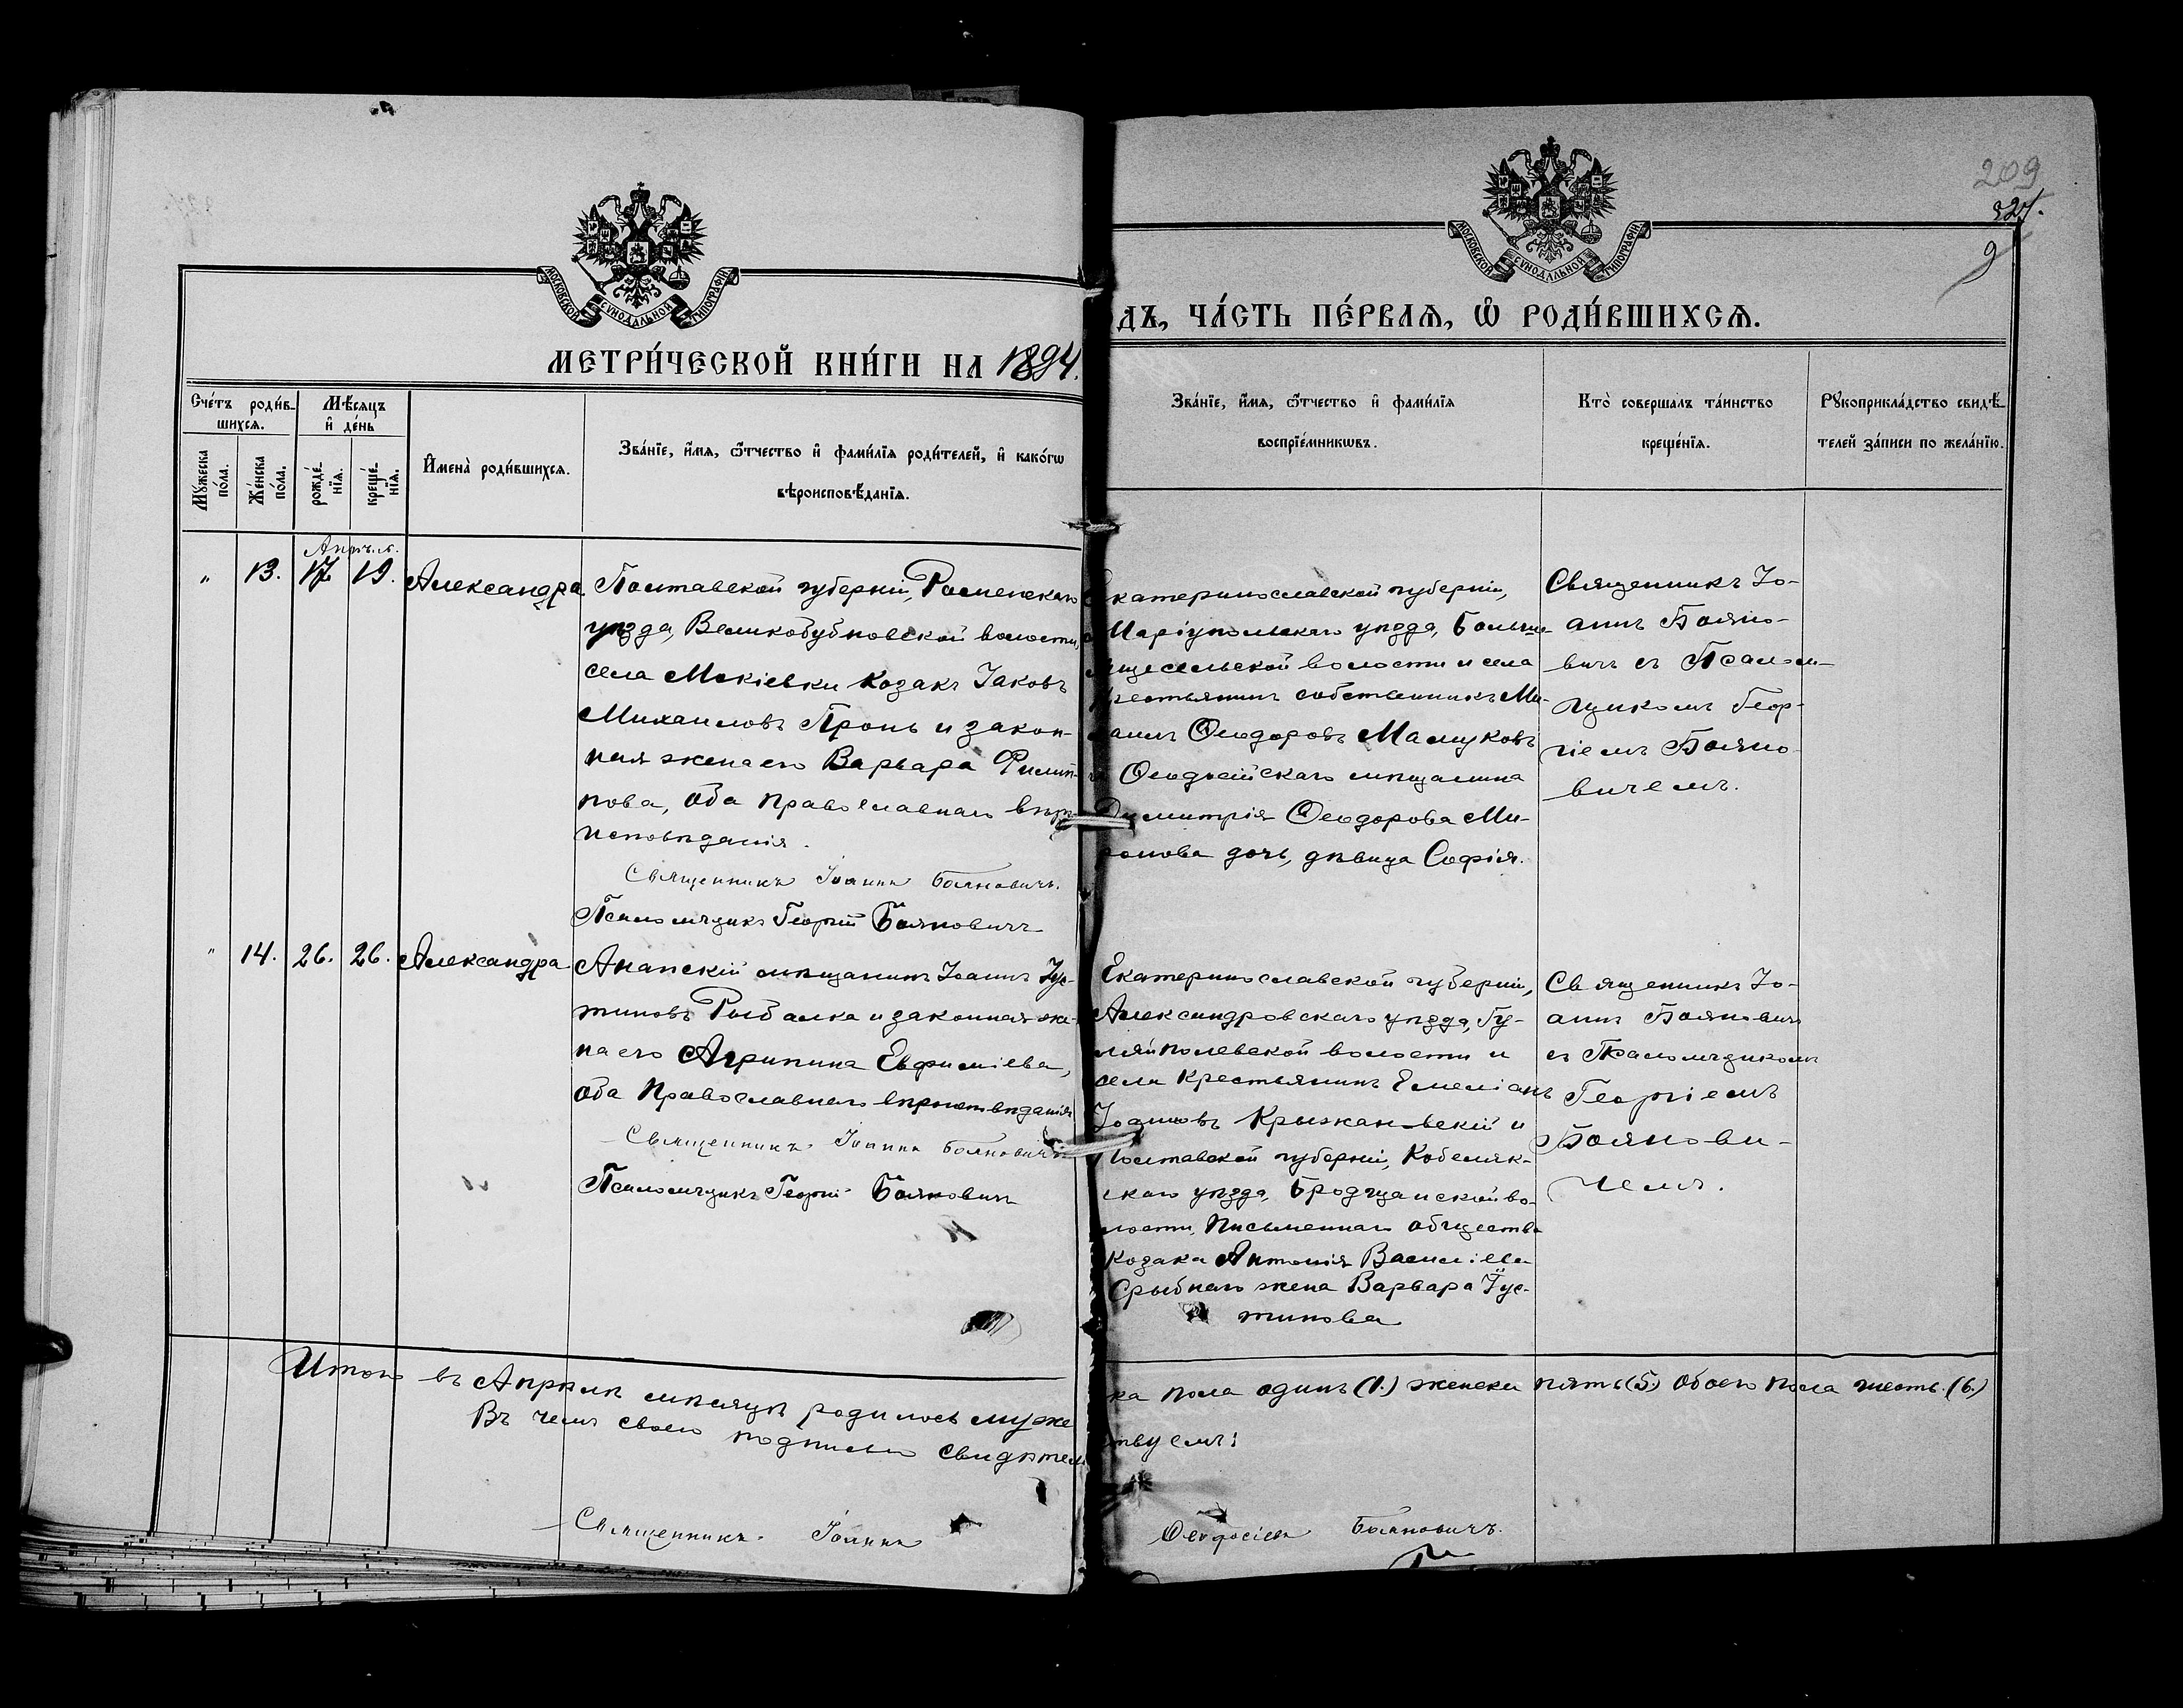 209
327.
9
МОСКОВСКОЙ СѴНОДАЛЬНОЙ ТИПОГРАФІИ
МОСКОВСКОЙ СѴНОДАЛЬНОЙ ТИПОГРАФІИ
МЕТРИ́ЧЕСКОЙ КНИ́ГИ НА 1894.
ДЪ, ЧА́СТЬ ПЕ́РВАѦ, Ѡ҆ РОДИ́ВШИХСѦ.
Сче́тъ роди́в-
шихсѧ.
Мꙋ́жеска
по́ла.
Же́нска
по́ла.
Мѣ́сѧцъ
и҆ де́нь
рожде́-
нїѧ.
креще́-
нїѧ.
И҆мена̀ роди́вшихсѧ.
Зва́нїе, и҆́мѧ, ѻ҆́тчество и҆ фами́лїѧ роди́телей, и҆ како́гѡ
вѣроисповѣ́данїѧ.
Зва́нїе, и҆́мѧ, ѻ҆́тчество и҆ фами́лїѧ
воспрїе́мникѡвъ.
Кто̀ соверша́лъ та́инство
креще́нїѧ.
Рꙋкоприкла́дство свидѣ́-
телей за́писи по жела́нїю.
„ 13. 17. 19. Александра
Полтавской губерніи, Роменскаго
уѣзда, Великобубновской волости,
села Мокіевки козакъ Іаковъ
Михаиловъ Пронь и закон-
ная жена его Варвара Филип-
пова, оба православнаго вѣро
исповѣданія.
Священникъ Іоаннъ Бояновичъ.
Псаломщикъ Георгій Бояновичъ
Екатеринославской губерніи,
Маріупольскаго уѣзда, Больше-
сельской волости и села
крестьянинъ собственникъ Ми-
хаилъ Ѳеодоровъ Мамуковъ
Ѳеодосійскаго мѣщанина
Димитрія Ѳеодорова Ми-
ронова дочь, дѣвица Софія.
Священникъ Іо-
аннъ Бояно-
вичъ съ Псалом-
щикомъ Геор-
гіемъ Бояно-
вичемъ.
" 14. 26. 26. Александра
Анапскій мѣщанинъ Іоаннъ Іус-
тиновъ Рыбалка и законная же-
на его Агрипина Евфиміева,
оба Православнаго вѣроисповѣданія
Священникъ Іоаннъ Бояновичъ
Псаломщикъ Георгій Бояновичъ
Екатеринославской губерніи,
Александровскаго уѣзда, Гу-
ляйполевской волости и
села Крестьянинъ Емеліанъ
Іоанновъ Крыжановскій и
Полтавской губерніи, Кобеляк-
скаго уѣзда, Бродщанской во-
лости, Письменнаго общества
козака Антонія Василіева
Срыбнаго жена Варвара Іус-
тинова
Священникъ Іо-
аннъ Бояновичъ
съ Псаломщикомъ
Георгіемъ
Боянови-
чемъ.
Итого въ Апрѣлѣ мѣсяцѣ родилось муже
ка пола одинъ (1.) женска пять (5.) обоего пола шесть. (6.)
Въ чемъ своею подписью свидѣтель
твуемъ:
Священникъ Іоаннъ
Ѳеодосіевъ Бояновичъ.